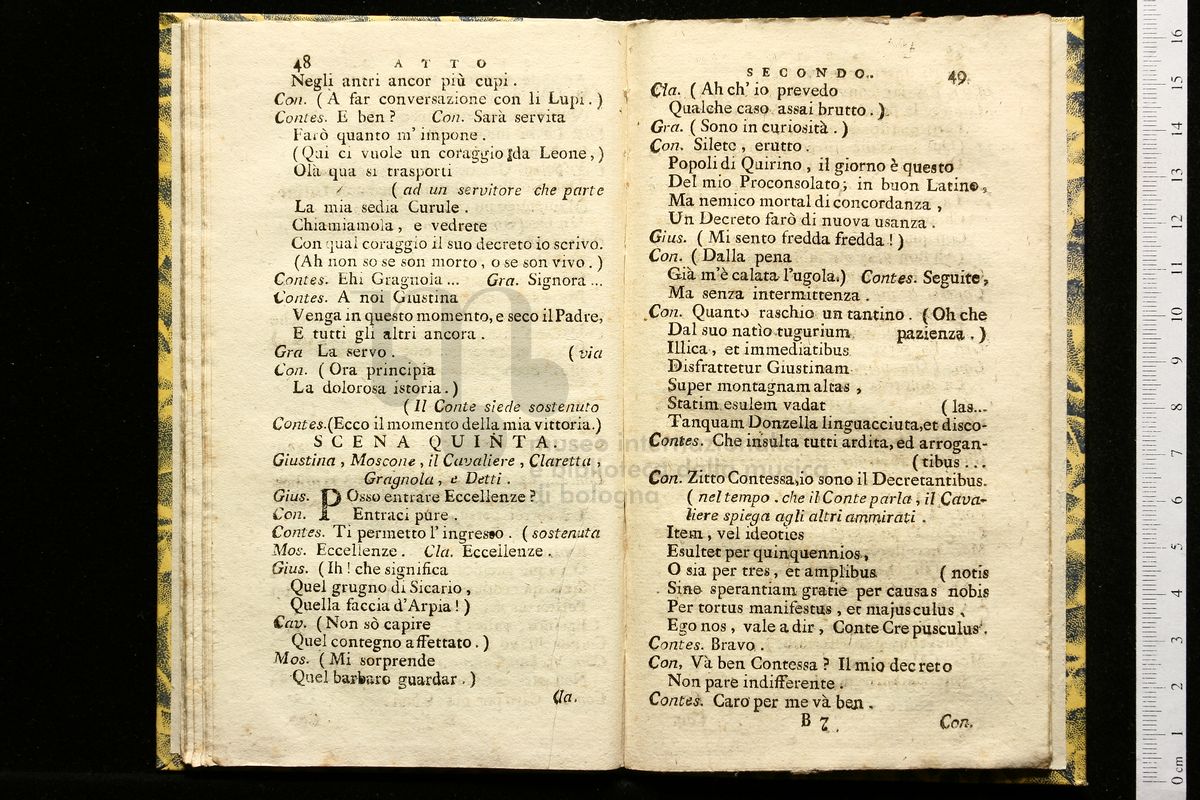 48 ATTO
Negli antri ancor più cupi.
Con. (A far conversazione con li Lupi.)
Contes. E ben? Con. Sarà servita
Farò quanto m' impone.
(Qui ci vuole un coraggio da Leone,)
Olà qua si trasporti
(ad un servitore che parte
La mia sedia Curule.
Chiamiamola, e vedrete
Con qual coraggio il suo decreto io scrivo.
(Ah non so se son morto, o se son vivo.)
Contes. Ehi Gragnola ... Gra. Signora ...
Contes. A noi Giustina
Venga in questo momento, e seco il Padre,
E tutti gli altri ancora.
Gra La servo. (via
Con. (Ora principia
La dolorosa istoria.)
(Il Conte siede sostenuto
Contes.(Ecco il momento della mia vittoria.)
SCENA QUINTA.
Giustina, Moscone, il Cavaliere, Claretta,
Gragnola, e Detti.
Gius. POsso entrare Eccellenze?
Con. Entraci pure.
Contes. Ti permetto l' ingresso. (sostenuta
Mos. Eccellenze. Cla. Eccellenze.
Gius. (Ih! che significa
Quel grugno di Sicario,
Quella faccia d'Arpia!)
Cav. (Non sò capire
Quel contegno affettato.)
Mos. (Mi sorprende
Quel barbaro guardar.)
Cla.
SECONDO. 49
Cla. (Ah ch' io prevedo
Qualche caso assai brutto.)
Gra. (Sono in curiosità.)
Con. Silete, erutto.
Popoli di Quirino, il giorno è questo
Del mio Proconsolato; in buon Latino,
Ma nemico mortal di concordanza,
Un Decreto farò di nuova usanza.
Gius. (Mi sento fredda fredda!)
Con. (Dalla pena
Già m'è calata l'ugola.) Contes. Seguite,
Ma senza intermittenza.
Con. Quanto raschio un tantino. (Oh che
Dal suo natio tugurium pazienza.)
Illica, et immediatibus
Disfrattetur Giustinam
Super montagnam altas,
Statim esulem vadat (las...
Tanquam Donzella linguacciuta,et disco-
Contes. Che insulta tutti ardita, ed arrogan-
(tibus ...
Con. Zitto Contessa,io sono il Decretantibus.
(nel tempo. che il Conte parla, il Cava-
liere spiega agli altri ammirati.
Item, vel ideoties
Esultet per quinquennios,
O sia per tres, et amplibus (notis
Sine sperantiam gratie per causas nobis
Per tortus manifestus, et majusculus,
Ego nos, vale a dir, Conte Crepusculus.
Contes. Bravo.
Con, Và ben Contessa? Il mio decreto
Non pare indifferente.
Contes. Caro per me và ben.
B 7 Con.
museo internazionale
e biblioteca della musica
di bologna
0 cm 1 2 3 4 5 6 7 8 9 10 11 12 13 14 15 16